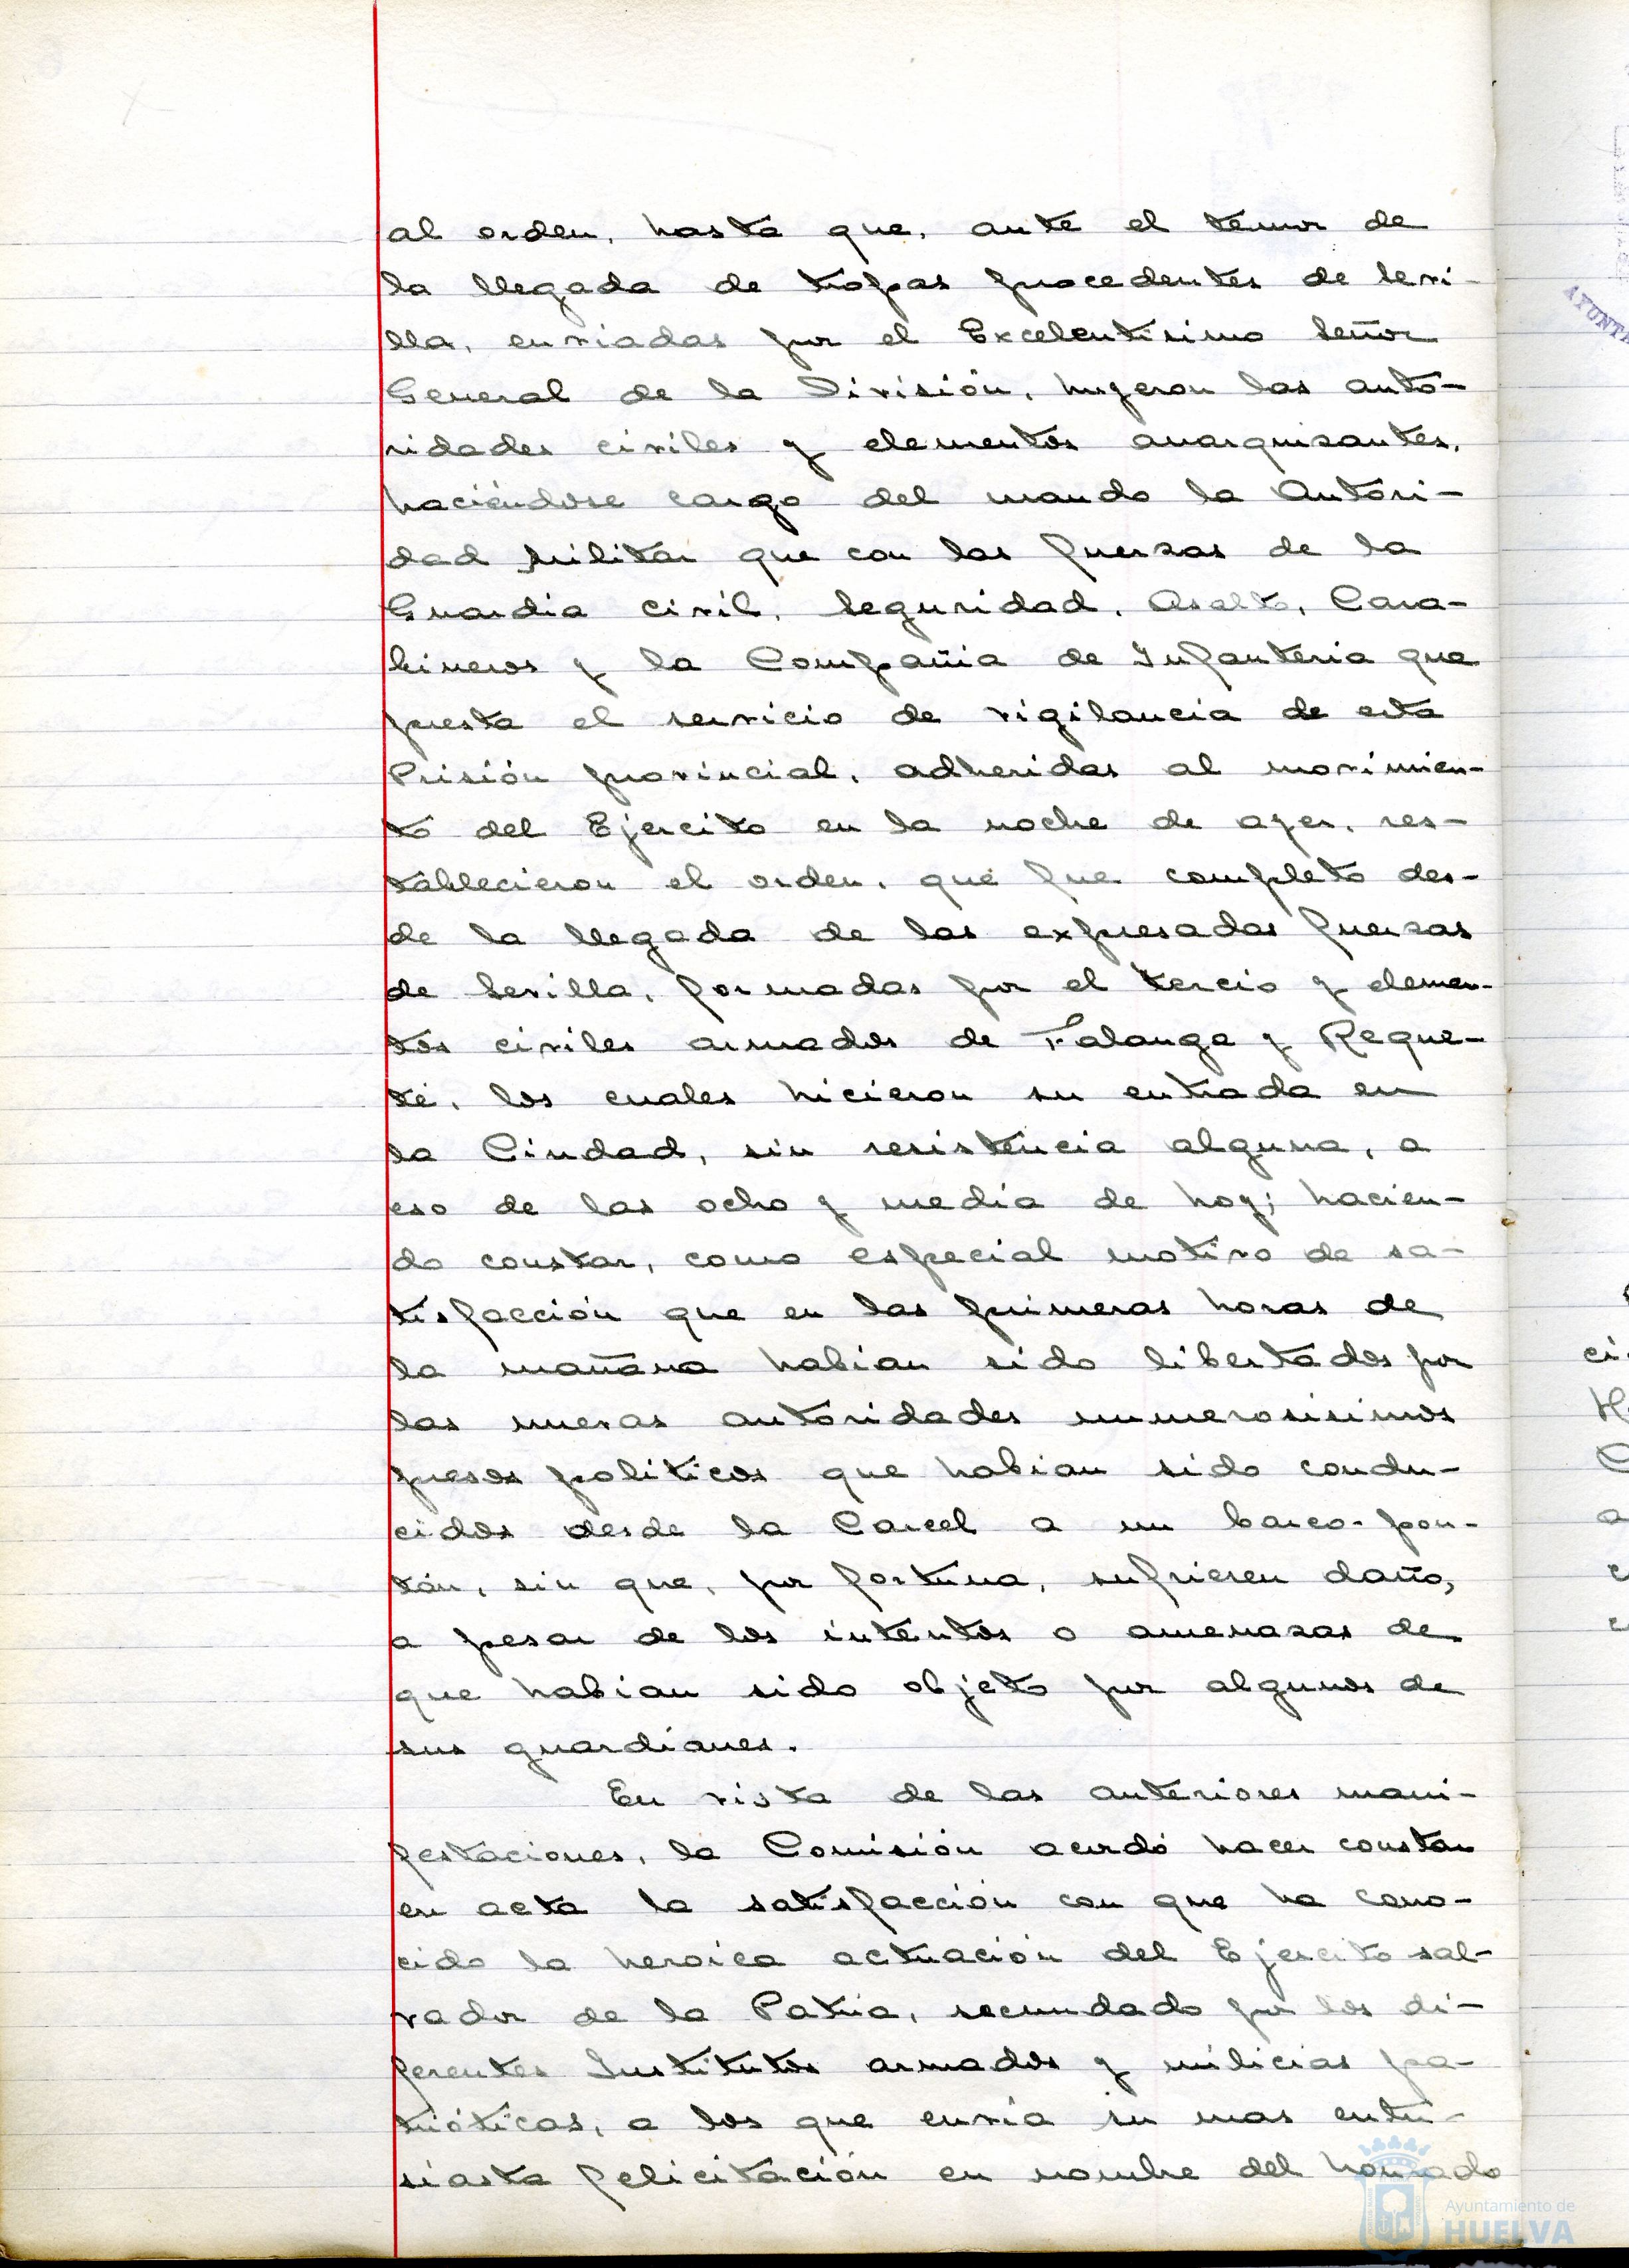 al orden, hasta que, ante el temor de
la llegada de tropas procedentes de Sevi-
lla, enviadas por el Excelentisimo Señor
General de la División, huyeron las auto-
ridades civiles y elementos anarquizantes,
haciéndose cargo del mando la Autori-
dad Militar que con las fuerzas de la
Guardia civil, Seguridad, Asalto, Cara-
bineros y la Compañia de Infanteria que
presta el servicio de vigilancia de esta
Prisión provincial, adheridas al movimien-
to del Ejercito en la noche de ayer, res-
tablecieron el orden, que fue completo des-
de la llegada de las expresadas fuerzas
de Sevilla, formadas por el tercio y elemen-
tos civiles armados de Falange y Reque-
té, los cuales hicieron su entrada en
la Ciudad, sin resistencia alguna, a
eso de las ocho y media de hoy; hacien-
do constar, como especial motivo de sa-
tisfacción que en las primeras horas de
la mañana habian sido libertados por
las nuevas autoridades numerosisimos
presos politicos que habian sido condu-
cidos desde la Carcel a un barco-pon-
tón, sin que, por fortuna, sufrieren daño,
a pesar de los intentos o amenazas de
que habian sido objeto por algunos de
sus guardianes.
En vista de las anteriores mani-
festaciones, la Comisión acordó hacer constar
en acta la satisfacción con que ha cono-
cido la heroica actuación del Ejercito sal-
vador de la Patria, secundado por los di-
ferentes Institutos armados y milicias pa-
trióticas, a los que envia su mas entu-
siasta felicitación en nombre del honrado
AYUNTA
ci
H
C
a
c
Ayuntamiento de
HUELVA